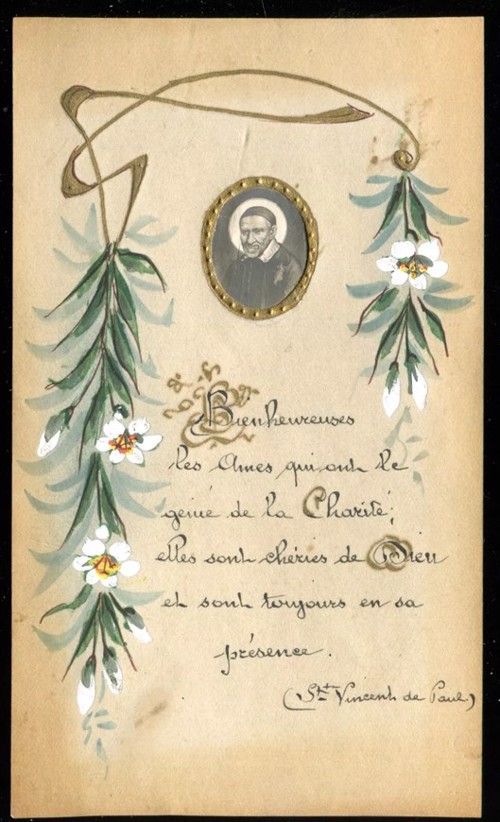 Bienheureuses
les âmes qui ont le
génie de la Charité;
elles sont chéries de Dieu
et sont toujours en sa
présence.
(St Vincent de Paul)